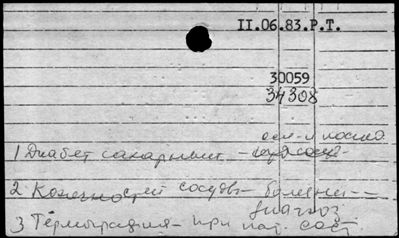 II.06.83.P.T.
30059
34308
1 Диабет сахарный -
2 Конечностей сосудов - болезни --
диагноз
3 Термография - при пат. сост.